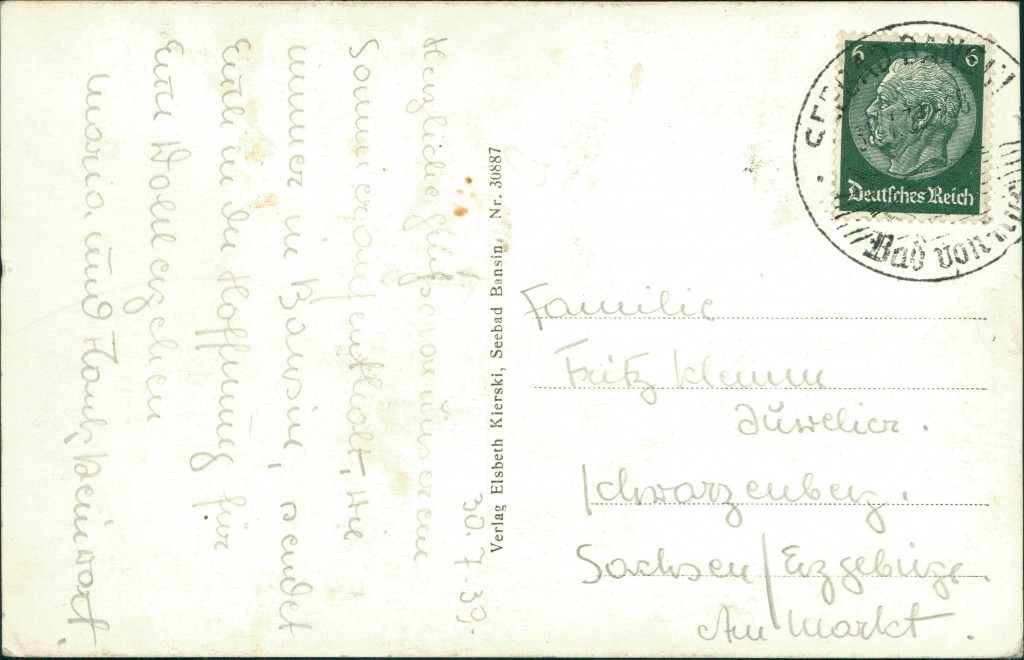 30.7.39.
Herzliche Grüße von unserem
Sommeraufenthalt, wie
immer in Bansin, sendet
Euch in der Hoffnung für
Euer Wohlergehen
Maria und
Verlag Elsbeth Kierski, Seebad Bansin, Nr. 30887
SEEBAD BANSIN
Bad von
6 6
Deutsches Reich
Familie
Fritz Klemm
Juwelier.
Schwarzenberg.
Sachsen/Erzgebirge.
Am Markt.